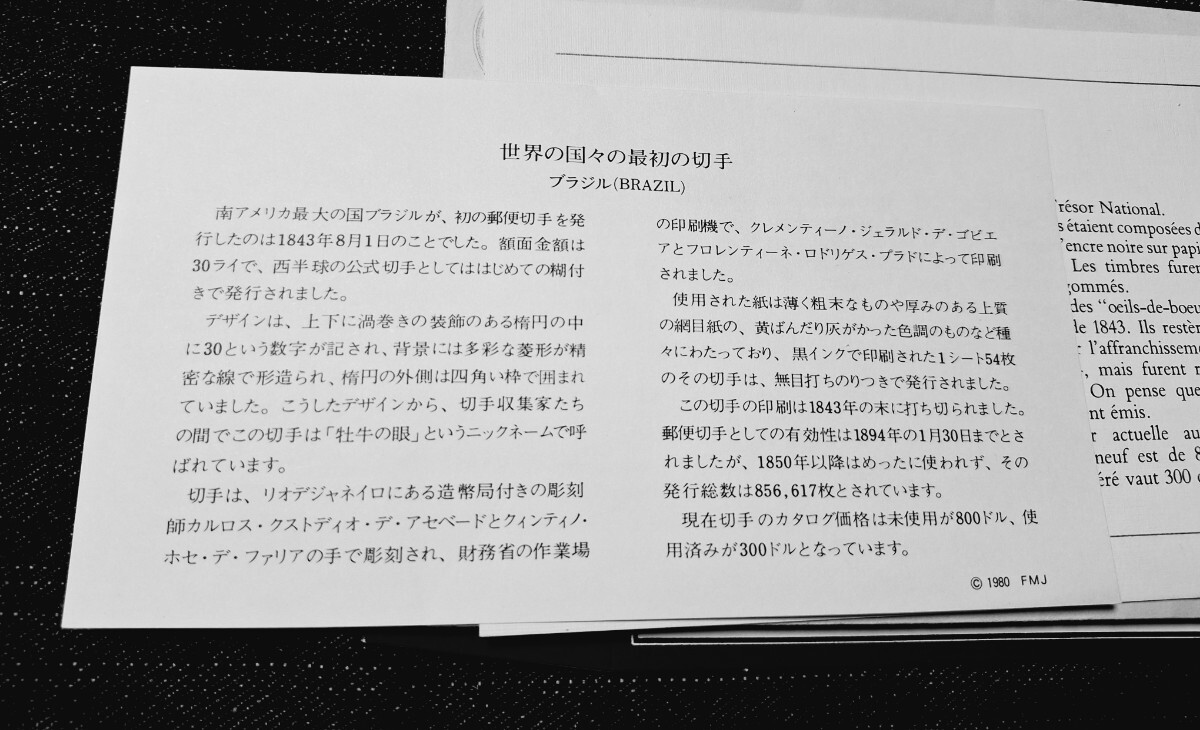 世界の国々の最初の切手
ブラジル(BRAZIL)
南アメリカ最大の国ブラジルが、初の郵便切手を発
行したのは1843年8月1日のことでした。額面金額は
30ライで、西半球の公式切手としてははじめての糊付
きで発行されました。
デザインは、上下に渦巻きの装飾のある楕円の中
に30という数字が記され、背景には多彩な菱形が精
密な線で形造られ、楕円の外側は四角い枠で囲まれ
ていました。こうしたデザインから、切手収集家たち
の間でこの切手は「牡牛の眼」というニックネームで呼
ばれています。
切手は、リオデジャネイロにある造幣局付きの彫刻
師カルロス・クストディオ・デ・アセベードとクィンティノ・
ホセ・デ・ファリアの手で彫刻され、財務省の作業場
の印刷機で、クレメンティーノ・ジェラルド・デ・ゴビエ
アとフロレンティーネ・ロドリゲス・プラドによって印刷
されました。
使用された紙は薄く粗末なものや厚みのある上質
の網目紙の、黄ばんだり灰がかった色調のものなど種
々にわたっており、黒インクで印刷された1シート54枚
のその切手は、無目打ちのりつきで発行されました。
この切手の印刷は1843年の末に打ち切られました。
郵便切手としての有効性は1894年の1月30日までとさ
れましたが、1850年以降はめったに使われず、その
発行総数は856,617枚とされています。
現在切手のカタログ価格は未使用が800ドル、使
用済みが300ドルとなっています。
© 1980 FMJ
résor National.
s étaient composées d
'encre noire sur papi
Les timbres furen
gommés.
des “oeils-de-boeu
de 1843. Ils restèr
l'affranchisseme
, mais furent r
On pense que
nt émis.
r actuelle au
neuf est de 8
éré vaut 300 d